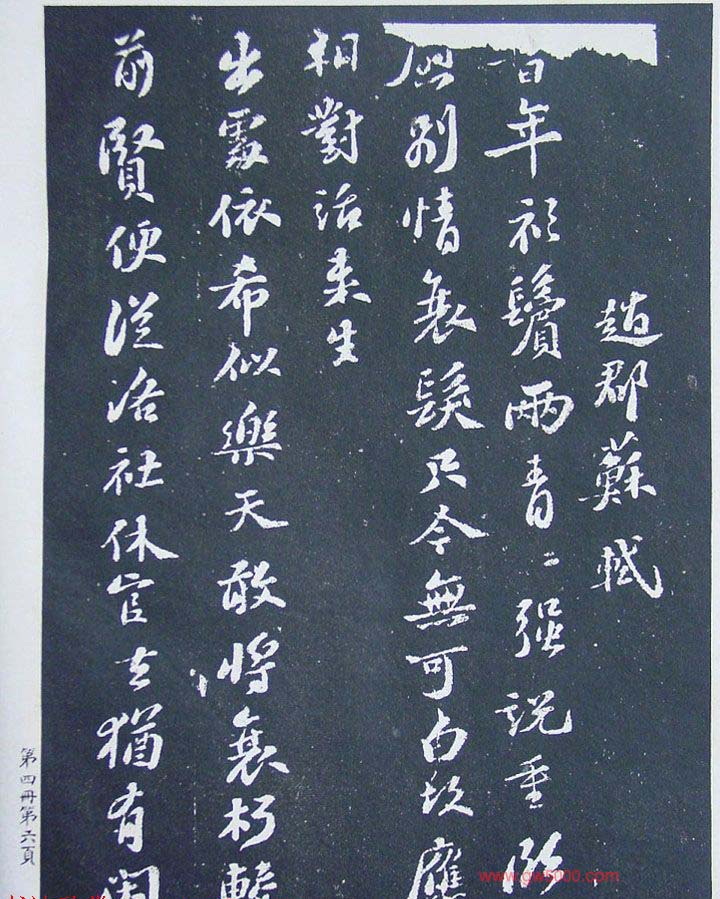 趙郡蘇軾
當年衫鬢兩青〻強說重臨
慰別情衰髮只今無可白故應
相對話來生
出處依希似樂天敢將衰朽較
前賢便從洛社休官去猶有閑
第四冊第六頁
www.gw5000.com